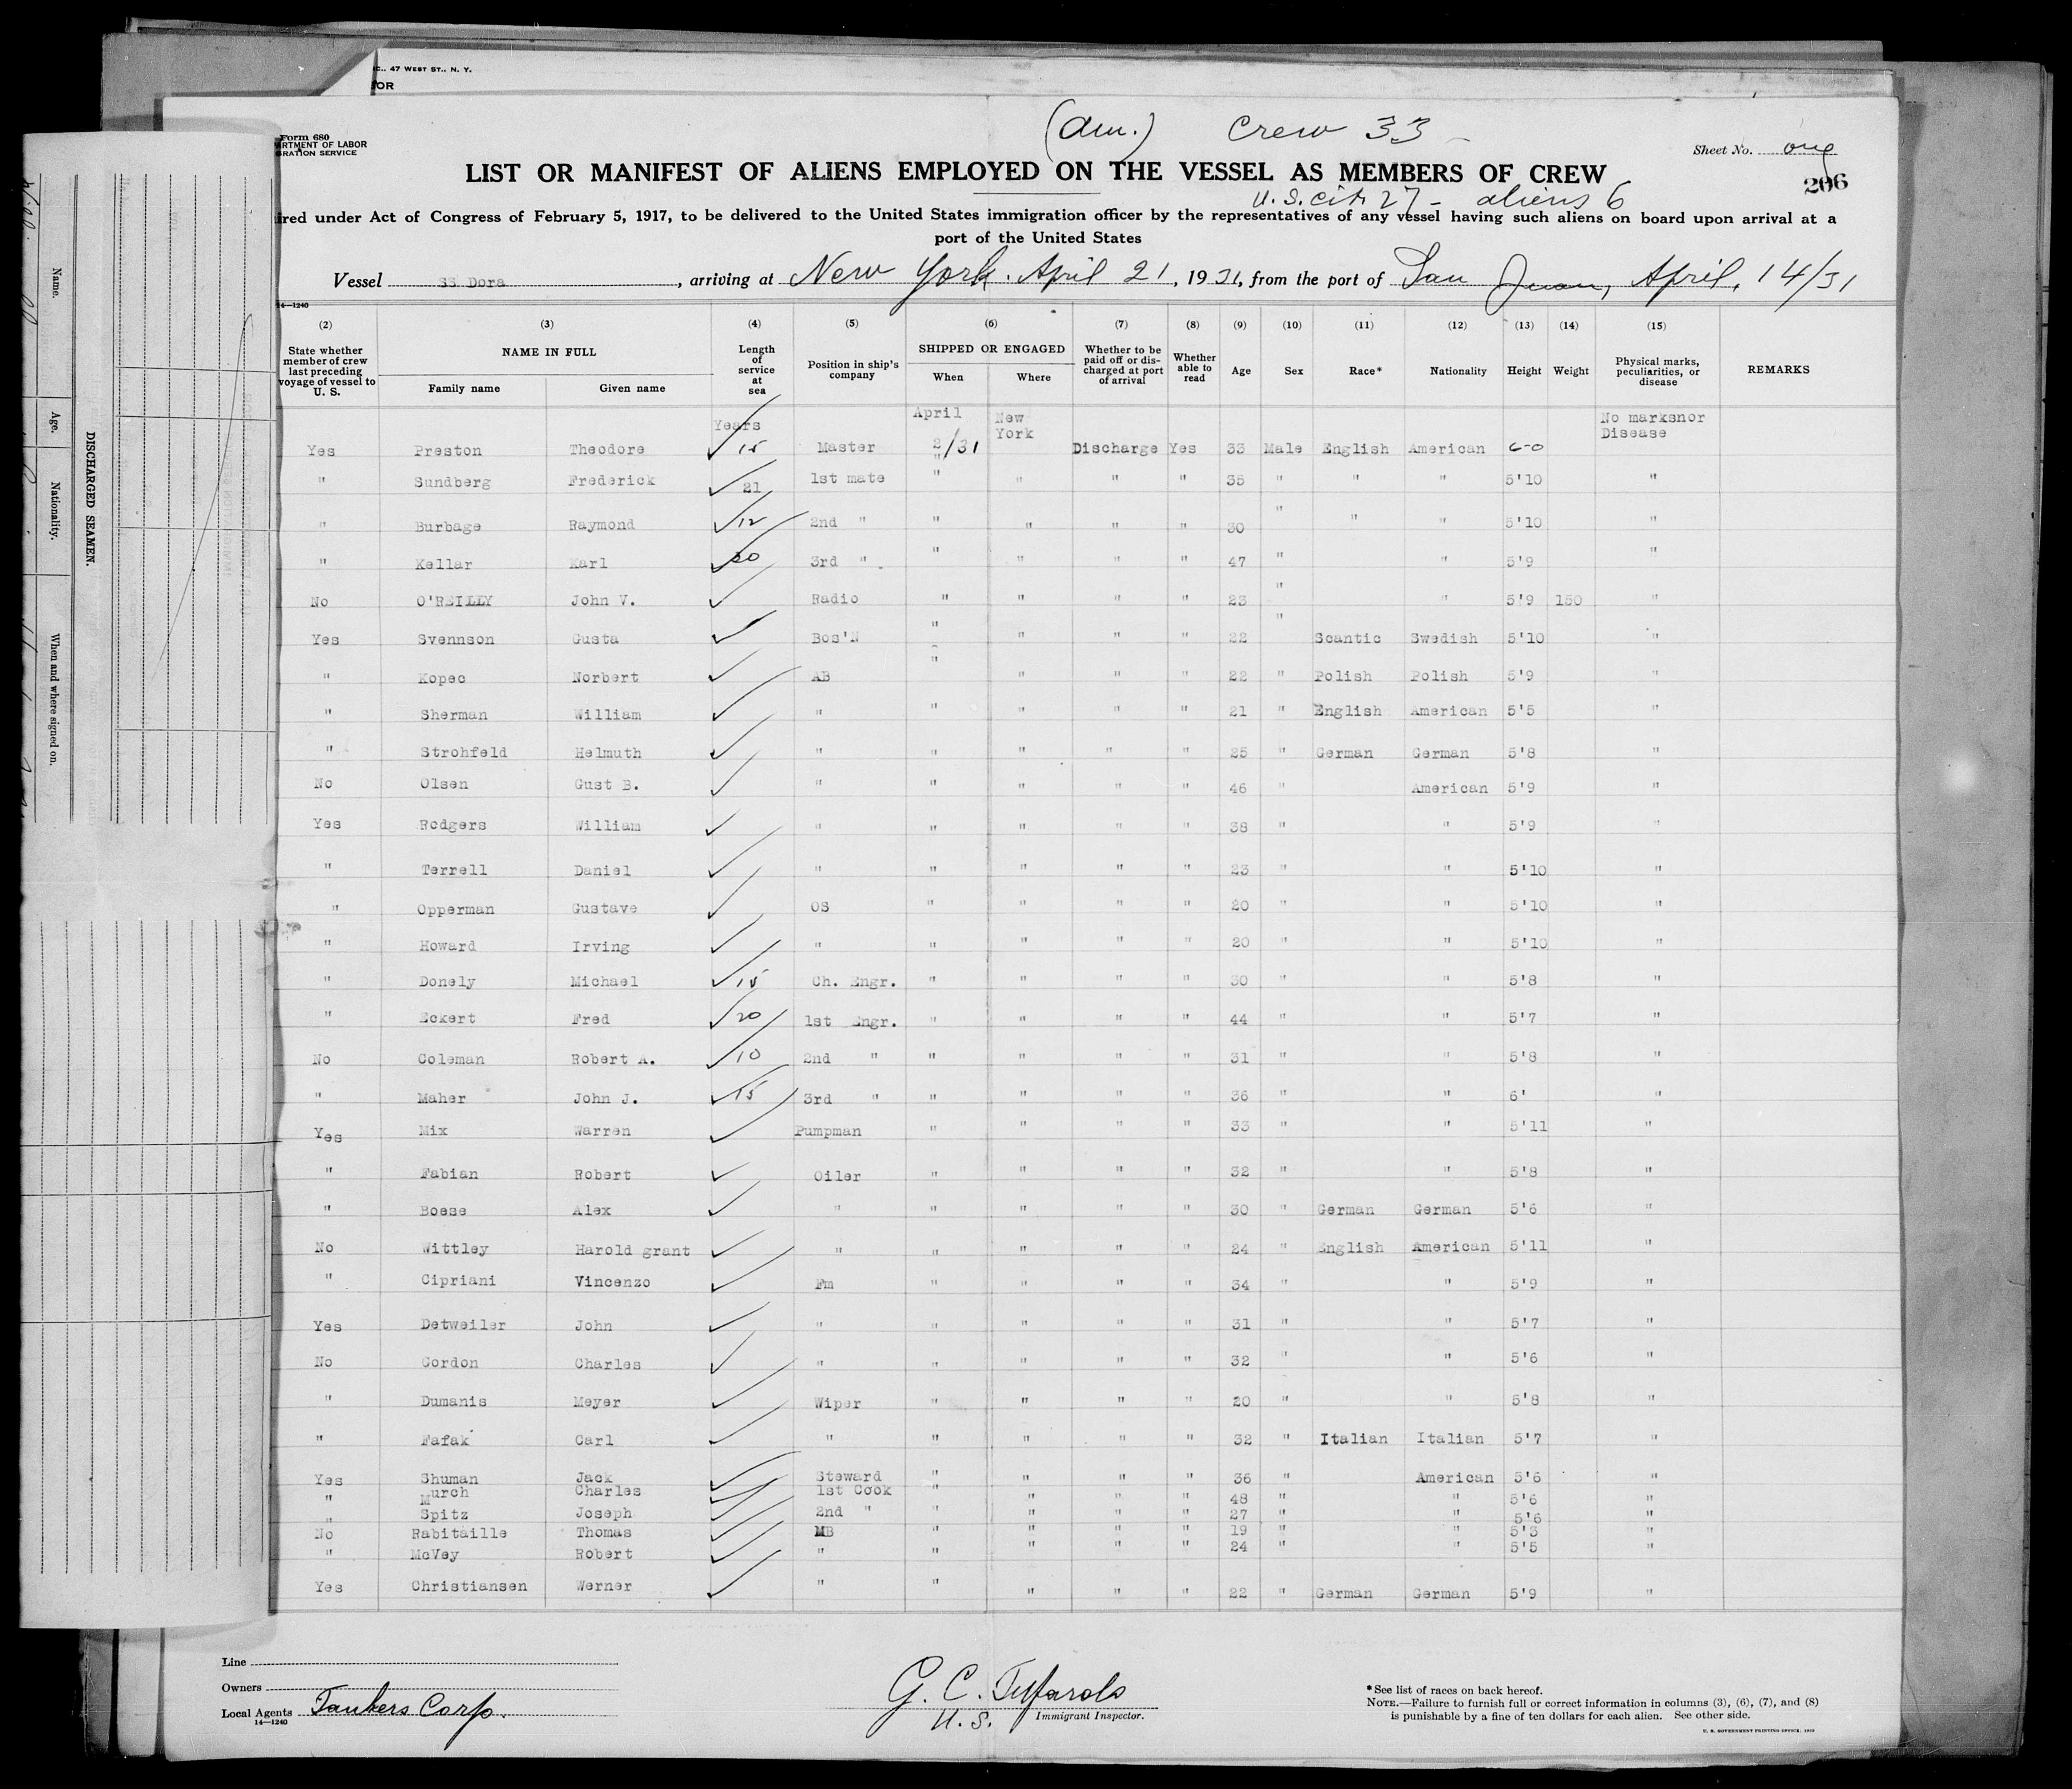 C., 47 WEST ST., N. Y.
OR
(Am.) Crew 33
Form 680
RTMENT OF LABOR
GRATION SERVICE
Sheet No. one
LIST OR MANIFEST OF ALIENS EMPLOYED ON THE VESSEL AS MEMBERS OF CREW
206
U.S. cit 27 - aliens 6
ired under Act of Congress of February 5, 1917, to be delivered to the United States immigration officer by the representatives of any vessel having such aliens on board upon arrival at a
port of the United States
Vessel SS Dora, arriving at New York. April 21, 1931, from the port of San Juan, April, 14/31
14—1240
(2) (3) (4) (5) (6) (7) (8) (9) (10) (11) (12) (13) (14) (15)
State whether member of crew last preceding voyage of vessel to U. S. NAME IN FULL Family name Given name Length of service at sea Position in ship's company SHIPPED OR ENGAGED When Where Whether to be paid off or discharged at port of arrival Whether able to read Age Sex Race* Nationality Height Weight Physical marks, peculiarities, or disease REMARKS
Years April New York No marksnor Disease
Yes Preston Theodore 15 Master 2/31 Discharge Yes 33 Male English American 6-0
" Sundberg Frederick 21 1st mate " " " " 35 " " " 5'10 "
" Burbage Raymond 12 2nd " " " " " 30 " " " 5'10 "
" Kellar Karl 20 3rd " " " " " 47 " " 5'9 "
No O'REILLY John V. Radio " " " " 23 " " 5'9 150 "
Yes Svennson Gusta Bos'N " " " " 22 " Scantic Swedish 5'10 "
" Kopec Norbert AB " " " " 22 " Polish Polish 5'9 "
" Sherman William " " " " " 21 " English American 5'5 "
" Strohfeld Helmuth " " " " " 25 " German German 5'8 "
No Olsen Gust B. " " " " " 46 " American 5'9 "
Yes Rodgers William " " " " " 38 " " 5'9 "
" Terrell Daniel " " " " " 23 " " 5'10 "
" Opperman Gustave OS " " " " 20 " " 5'10 "
" Howard Irving " " " " " 20 " " 5'10 "
" Donely Michael 15 Ch. Engr. " " " " 30 " " 5'8 "
" Eckert Fred 20 1st Engr. " " " " 44 " " 5'7 "
No Coleman Robert A. 10 2nd " " " " " 31 " " 5'8 "
" Maher John J. 15 3rd " " " " " 36 " " 6' "
Yes Mix Warren Pumpman " " " " 33 " " 5'11 "
" Fabian Robert Oiler " " " " 32 " " 5'8 "
" Boese Alex " " " " " 30 " German German 5'6 "
No Wittley Harold grant " " " " " 24 " English American 5'11 "
" Cipriani Vincenzo Fm " " " " 34 " " 5'9 "
Yes Detweiler John " " " " " 31 " " 5'7 "
No Gordon Charles " " " " " 32 " " 5'6 "
" Dumanis Meyer Wiper " " " " 20 " " 5'8 "
" Fafak Carl " " " " " 32 " Italian Italian 5'7 "
Yes Shuman Jack Steward " " " " 36 " American 5'6 "
" Murch Charles 1st Cook " " " " 48 " " 5'6 "
" Spitz Joseph 2nd " " " " " 27 " " 5'6 "
No Rabitaille Thomas MB " " " " 19 " " 5'3 "
" McVey Robert " " " " " 24 " " 5'5 "
Yes Christiansen Werner " " " " " 22 " German German 5'9 "
Line
Owners
Local Agents Tankers Corp.
14—1240
U. S. Immigrant Inspector.
*See list of races on back hereof.
NOTE.—Failure to furnish full or correct information in columns (3), (6), (7), and (8)
is punishable by a fine of ten dollars for each alien. See other side.
U. S. GOVERNMENT PRINTING OFFICE
DISCHARGED SEAMEN.
Name. Age. Nationality. When and where signed on.